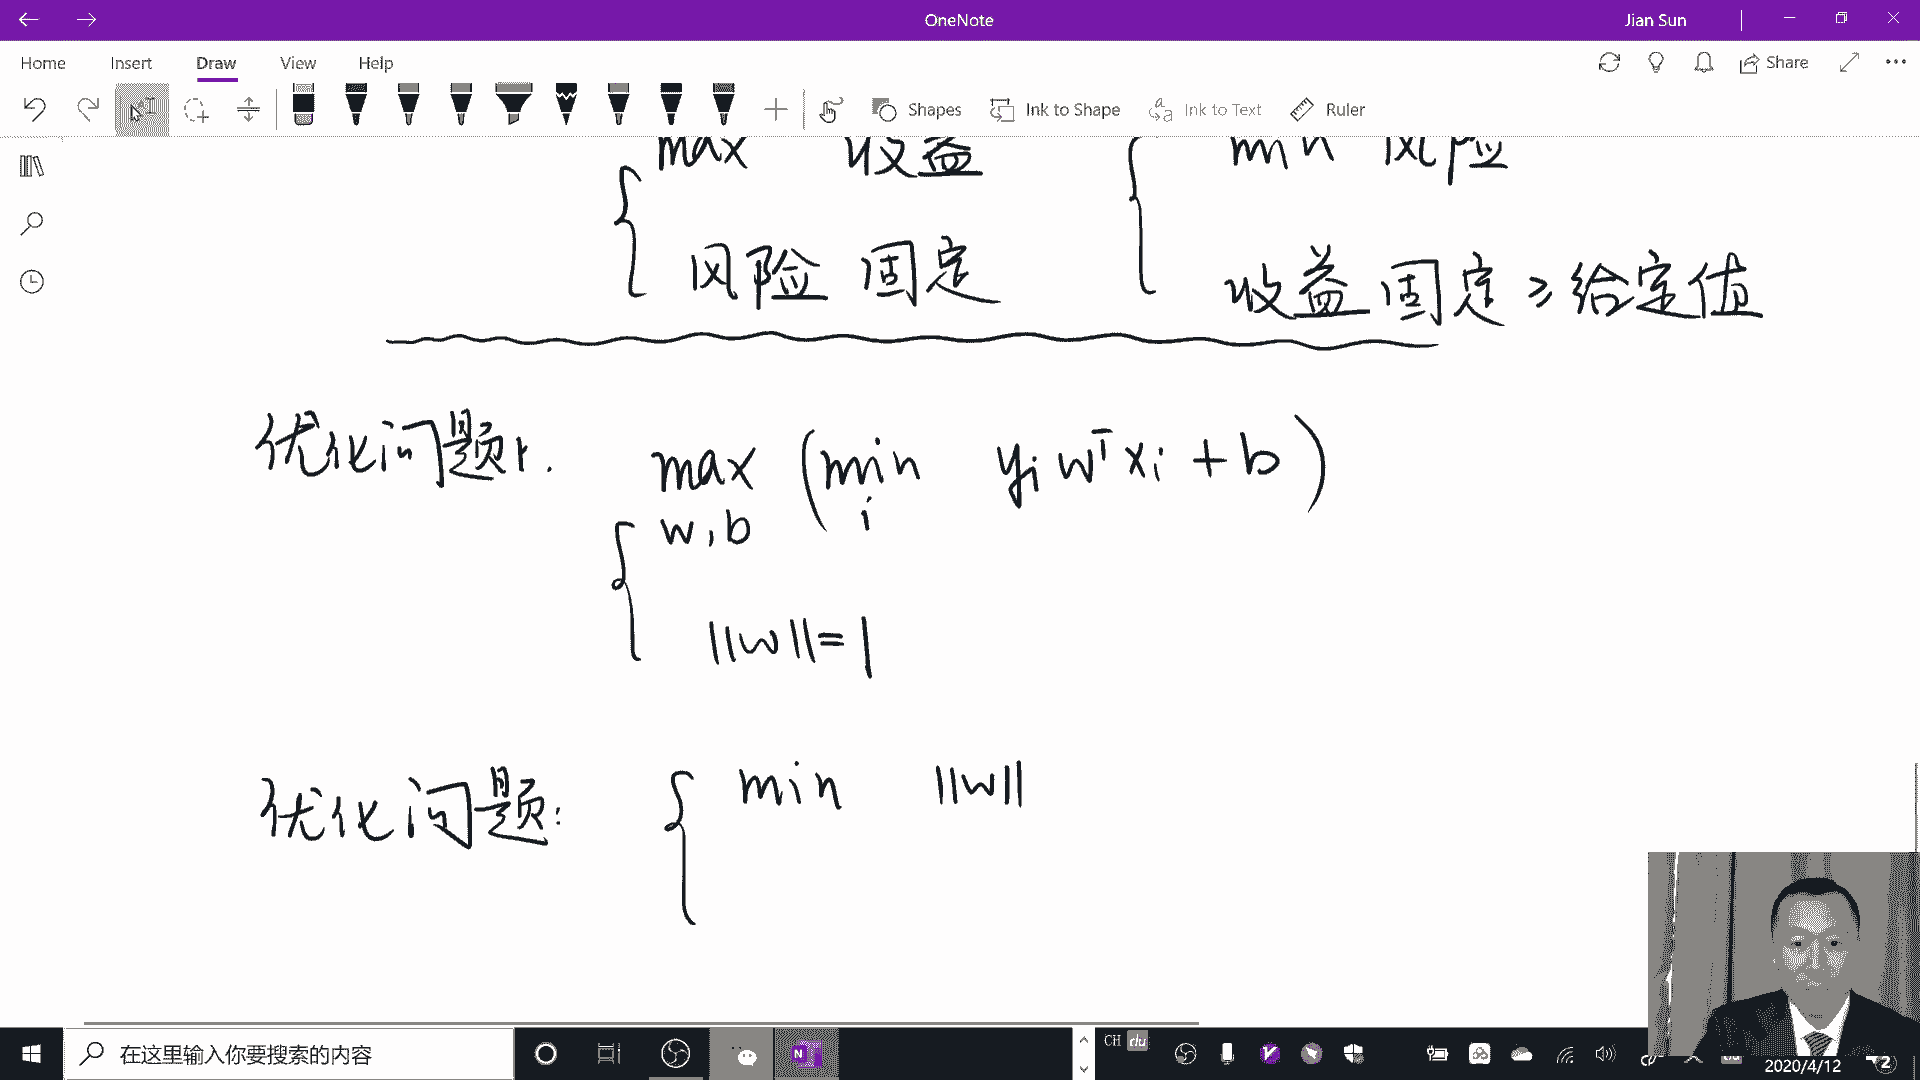 OneNote
Jian Sun
Home Insert Draw View Help
Share
Shapes Ink to Shape Ink to Text Ruler
max 收益 min 风险
风险 固定 收益 固定 ≥ 给定值
优化问题1. max (min yᵢ wᵀxᵢ + b)
w,b i
||w||=1
优化问题: min ||w||
在这里输入你要搜索的内容
CH
2020/4/12
2